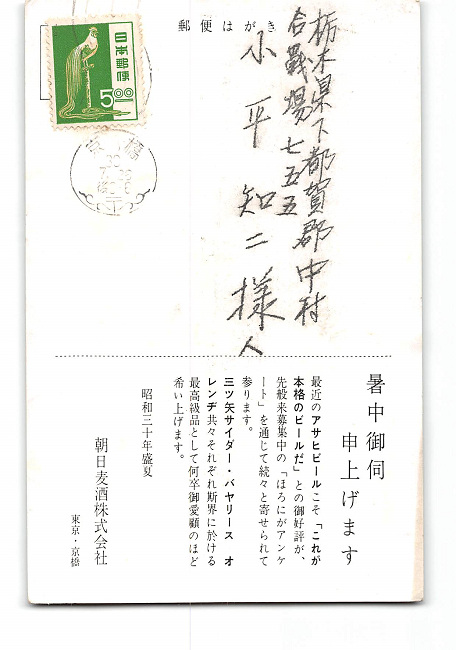 郵便はがき
日本郵便
5.00
栃木県下都賀郡中村
合戦場七五五
小平知二様
暑中御伺
申上げます
最近のアサヒビールこそ「これが
本格のビールだ」との御好評が、
先般来募集中の「ほろにがアンケ
ート」を通じて続々と寄せられて
参ります。
三ツ矢サイダー・バヤリース オ
レンヂ共々それぞれ斯界に於ける
最高級品として何卒御愛顧のほど
希い上げます。
昭和三十年盛夏
朝日麦酒株式会社
東京・京橋